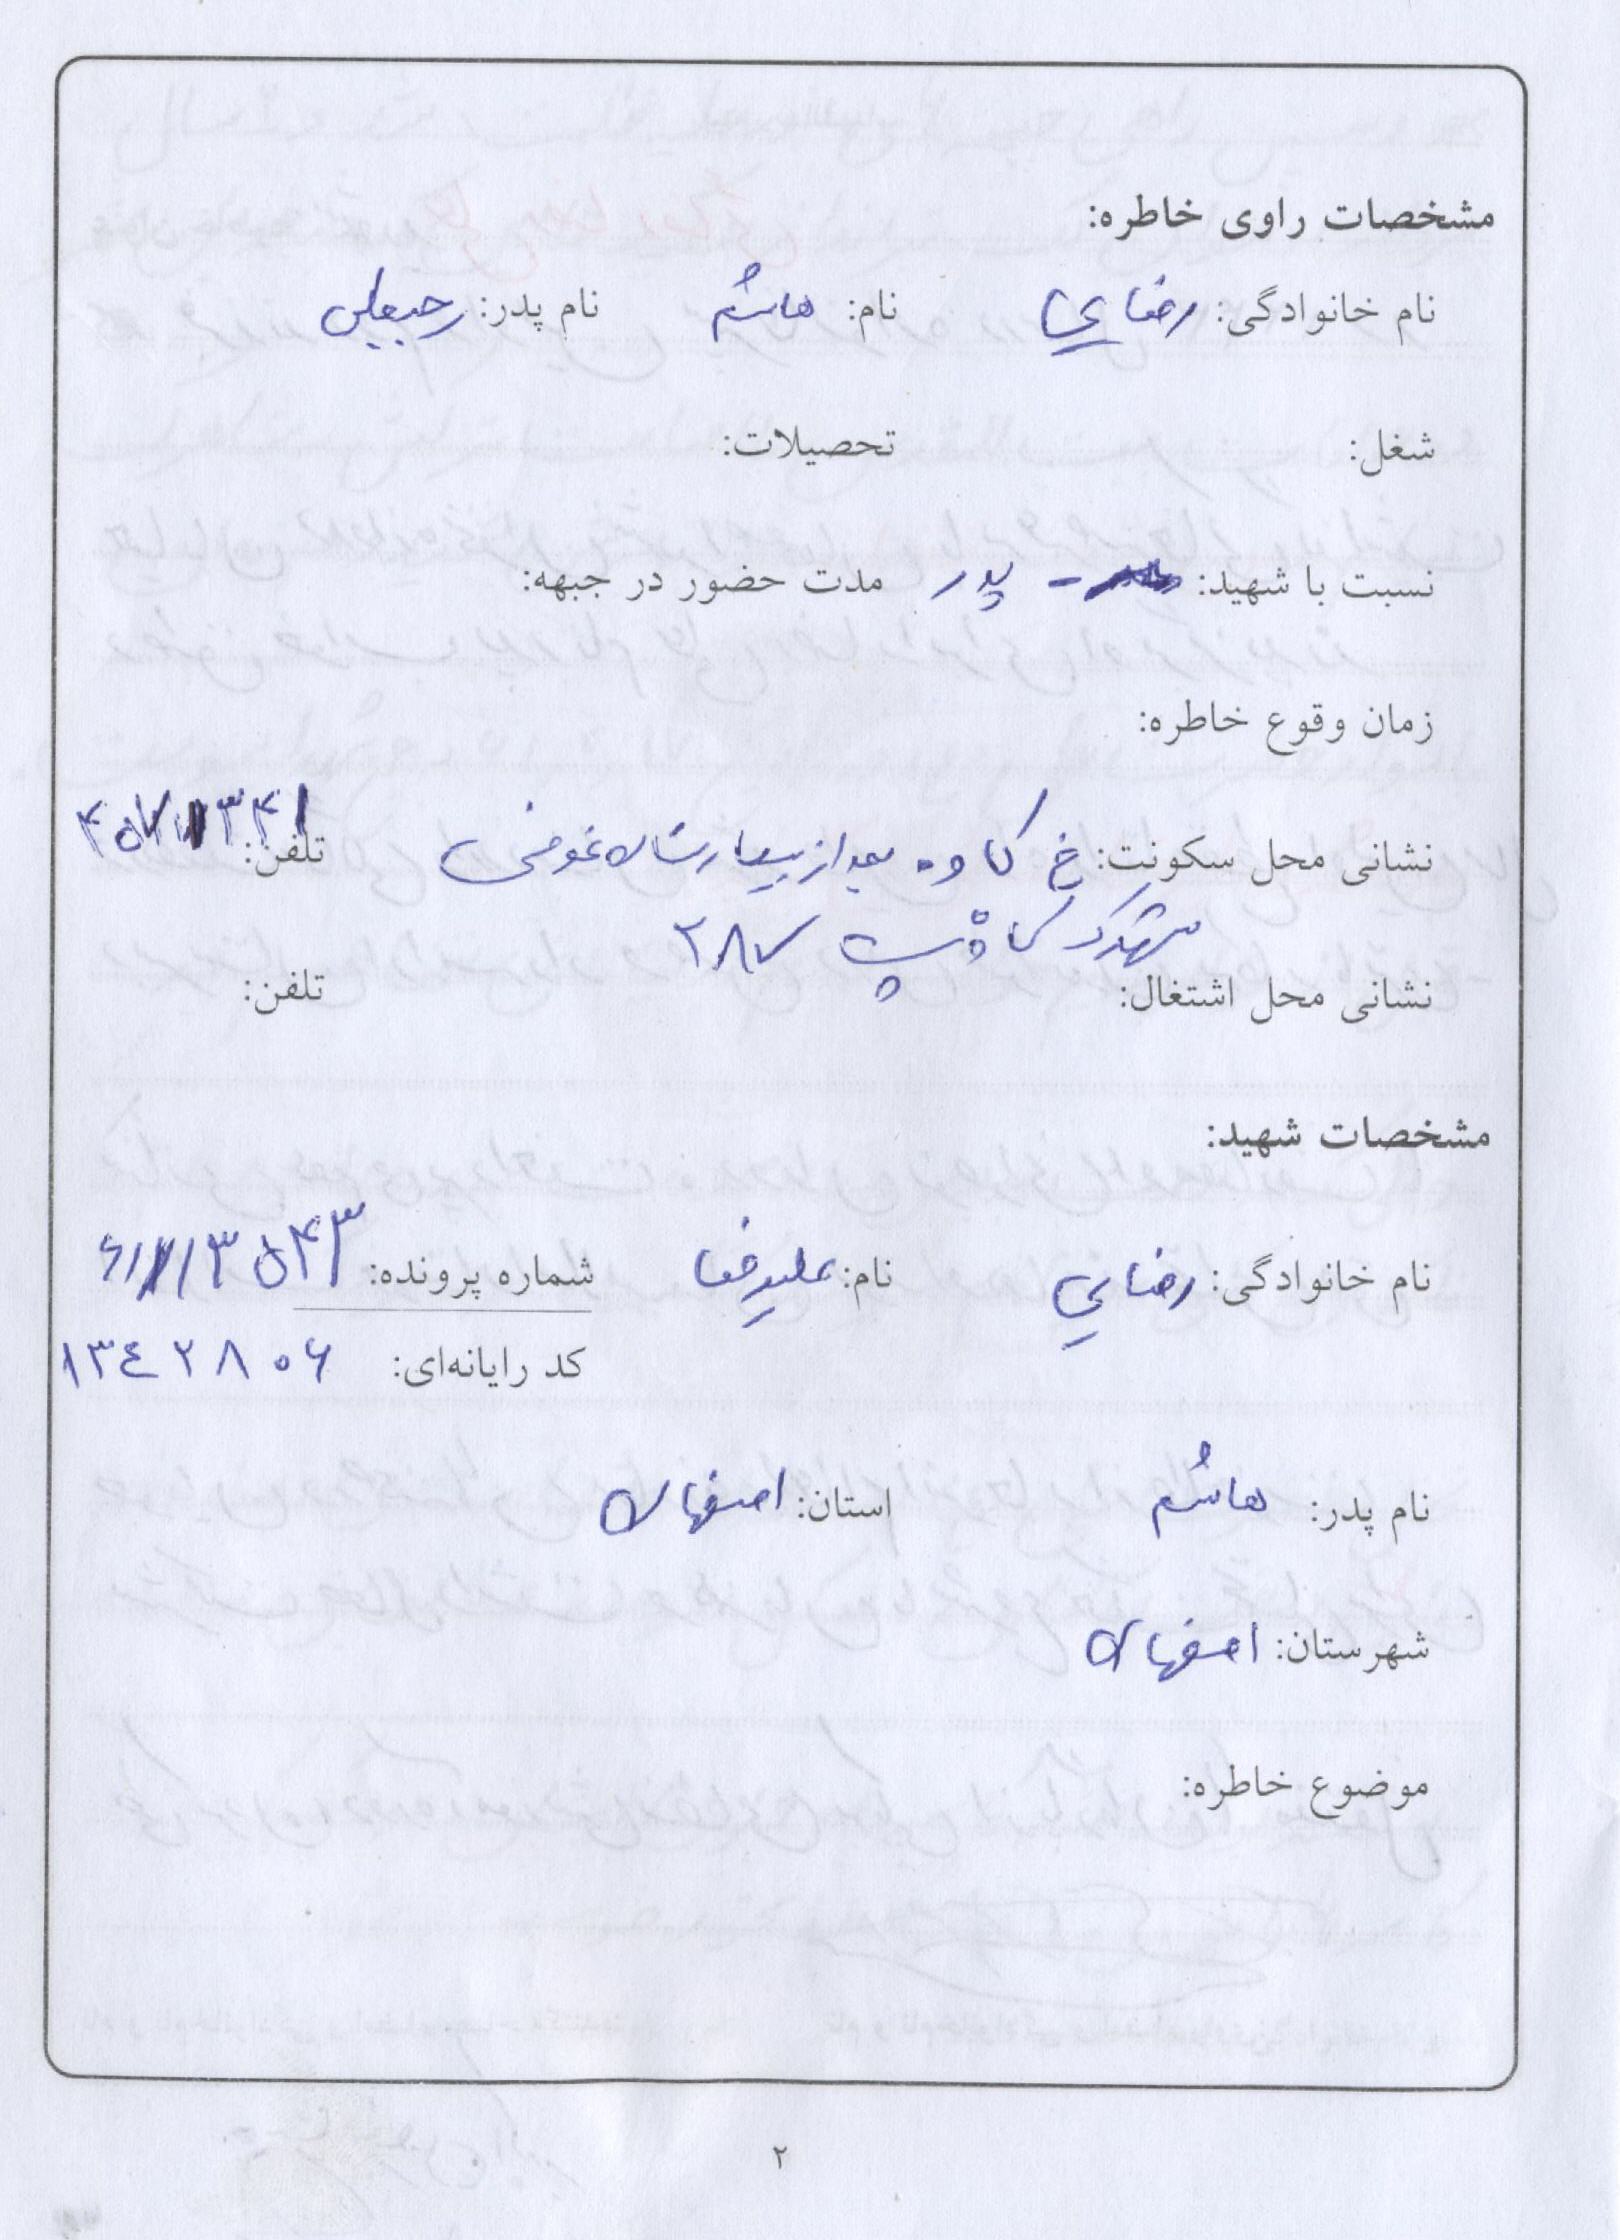 مشخصات راوی خاطره:
نام خانوادگی: رضایی نام: هاشم نام پدر: رجبعلی
شغل: تحصیلات:
نسبت با شهید: - پدر مدت حضور در جبهه:
زمان وقوع خاطره:
نشانی محل سکونت: خ کاوه بعد از بیمارستان غرضی تلفن:
شهرک کاوه پ ۲۸۷
نشانی محل اشتغال: تلفن:
مشخصات شهید:
نام خانوادگی: رضایی نام: علیرضا شماره پرونده:
کد رایانه‌ای: ۱۳۴۲۸۰۶
نام پدر: هاشم استان: اصفهان
شهرستان: اصفهان
موضوع خاطره:
۲